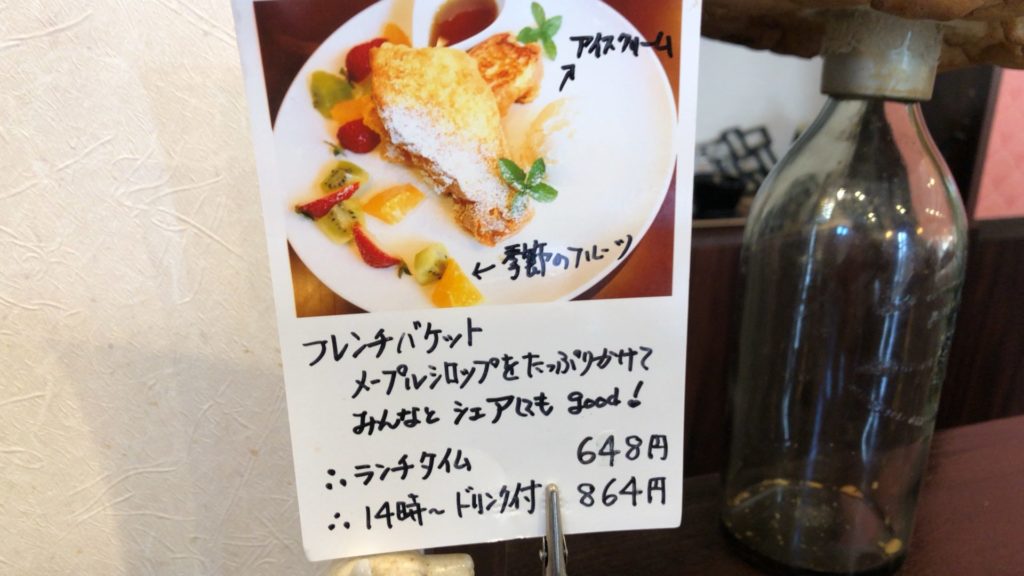 アイスクリーム
↗
← 季節のフルーツ
フレンチバケット
メープルシロップをたっぷりかけて
みんなと シェアにも good!
∴ ランチタイム 648円
∴ 14時～ドリンク付 864円